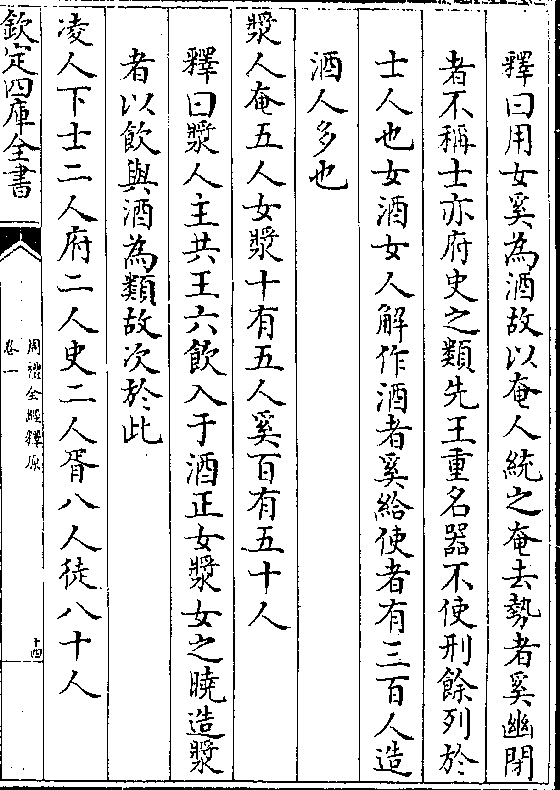 釋曰用女奚為酒故以奄人統之奄去勢者奚幽閉
者不稱士亦府史之類先王重名器不使刑餘列於
士人也女酒女人解作酒者奚給使者有三百人造
酒人多也
漿人奄五人女漿十有五人奚百有五十人
釋曰漿人主共王六飲入于酒正女漿女之曉造漿
者以飲與酒為類故次於此
凌人下士二人府二人史二人胥八人徒八十人
欽定四庫全書
周禮全經釋原
卷一
十四